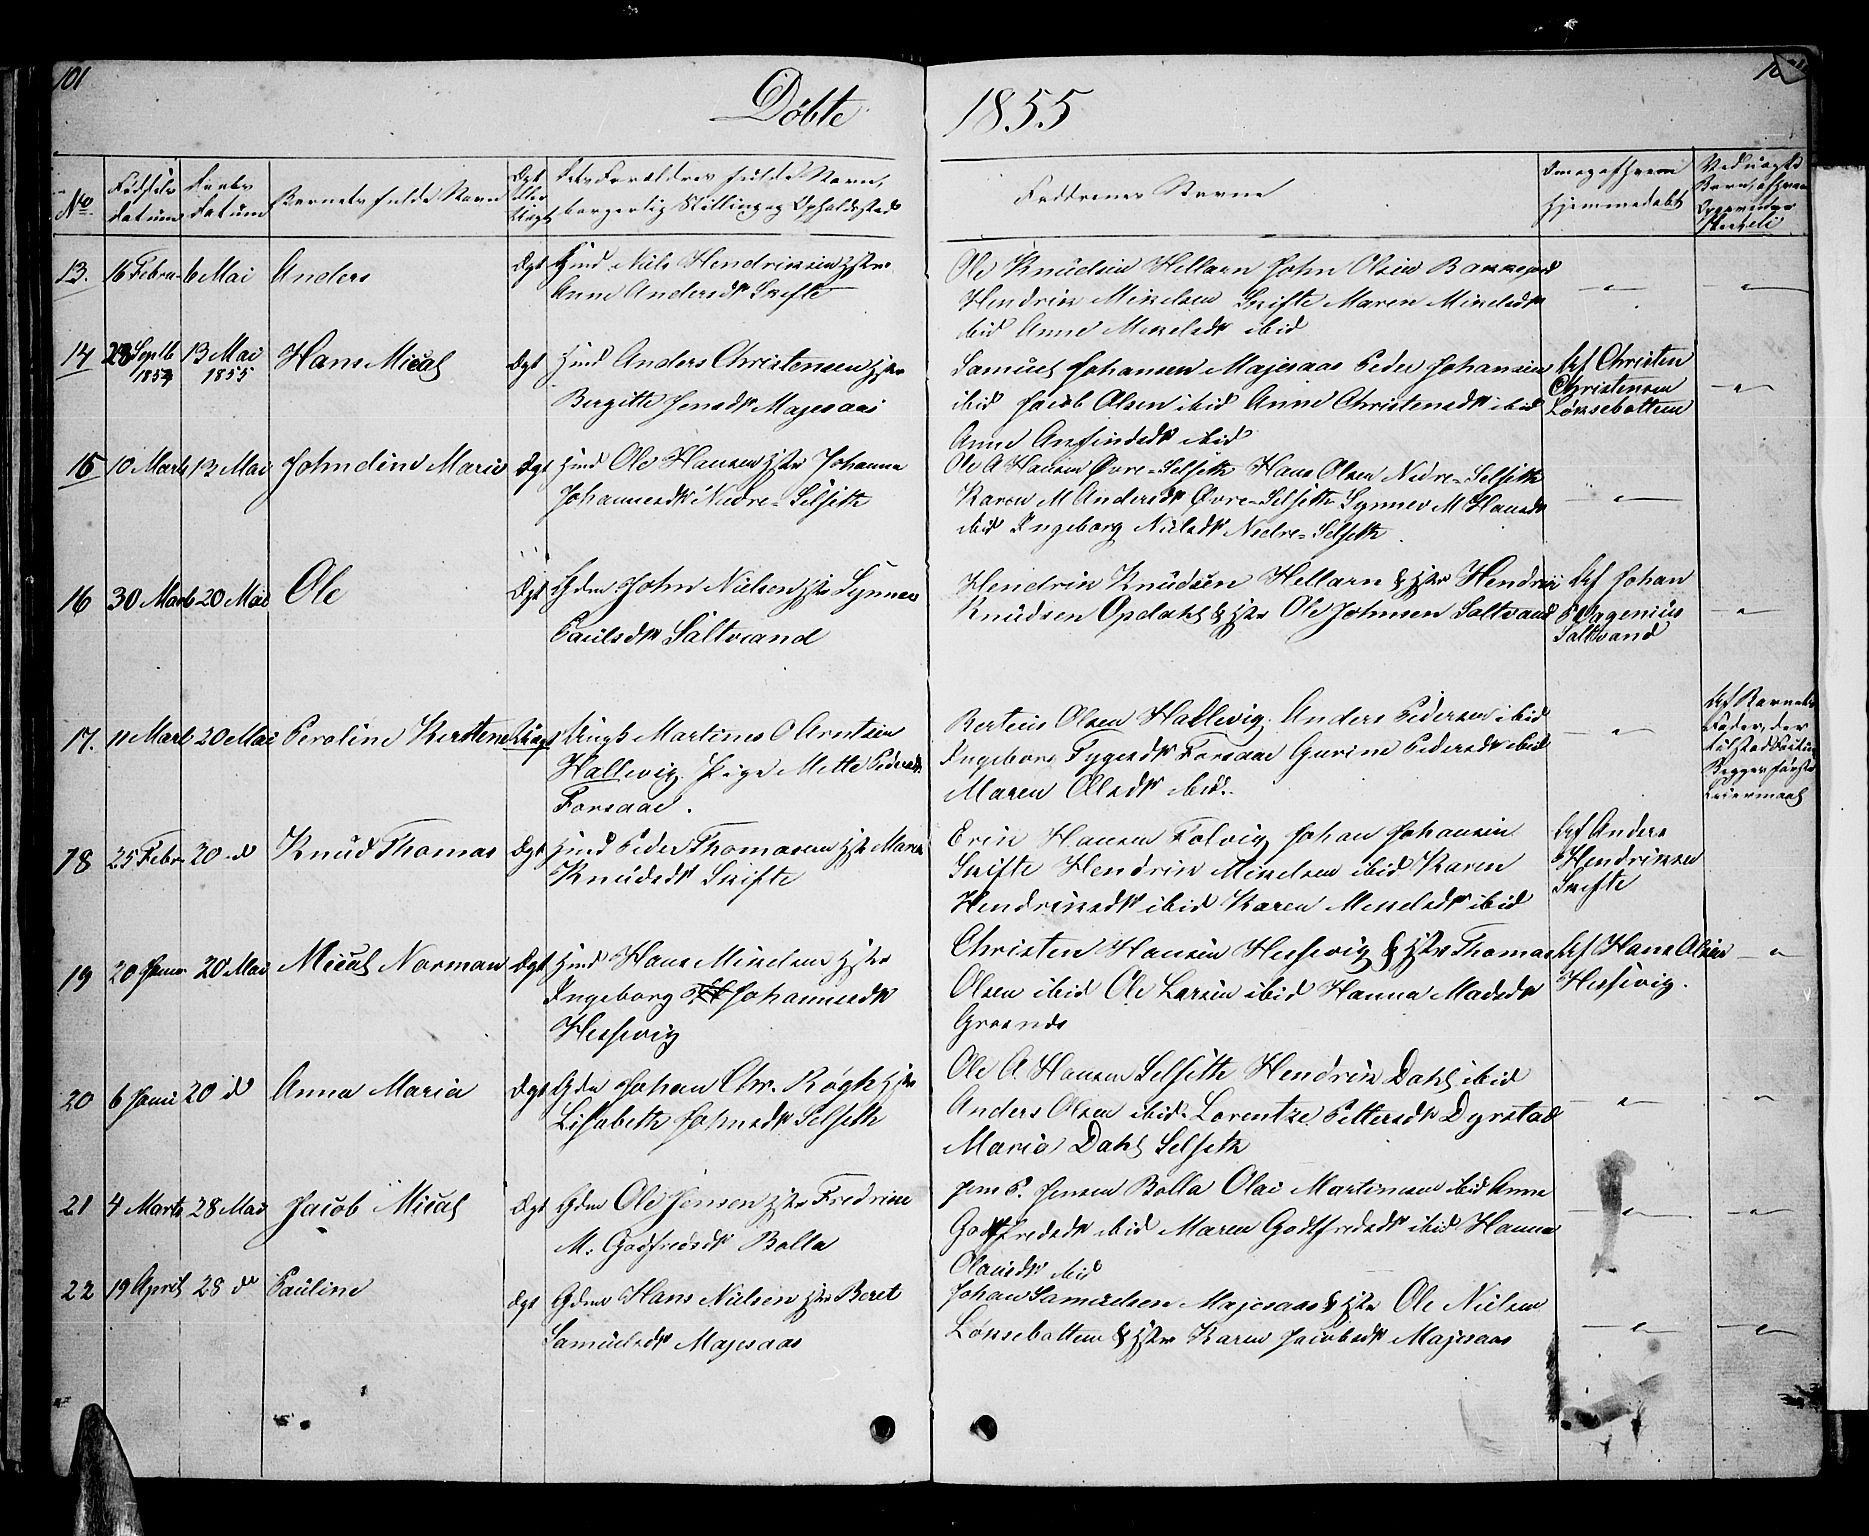 101
Døbte 1855
No. Fødsels Datum Daabs Datum Barnets fulde Navn Ægt eller Uægt Forældres fulde Navn, borgerlig Stilling og Opholdssted
Faddernes Navne
13. 16 Febru 6 Mai Anders Ægt Hmd Niels Hendriksen Hstr
Anne Andersdtr Skifte
Ole Knudsen Hellarn John Olsen Bakkejord
Hendrik Mikelsen Skifte Maren Mikelsdtr
ibid Anne Mikelsdtr ibid
14 28 Septb 1854 13 Mai 1855 Hans Micael Ægt Hmd Anders Christensen Hstr
Birgitte Jensdtr Majesaas
Samuel Johansen Majesaas Peder Johansen
ibid Jacob Olsen ibid Anne Christensdtr ibid
Anne Anfindsdtr ibid
Af Christen
Christensen
Løksebottem
15 10 Marts 13 Mai Johndine Marie Ægt Hmd Ole Hansen Hstr Johanna
Johannesdtr Nedre-Selseth
Ole A Hansen Øvre-Selseth Hans Olsen Nedre-Selseth
Karen M Andersdtr Øvre-Selseth Synnev M Hansdtr
ibid Ingeborg Nielsdtr Nedre-Selseth.
16 30 Marts 20 Mai Ole Ægt Gdm John Nielsen Hstr Synnev
Paulsdtr Saltvand
Hendrik Knudsen Hellarn & Hstr Hendrik
Knudsen Opdahl & Hstr Ole Johnsen Saltvand
Af Johan
Saltvand
17. 11 Marts 20 Mai Peroline Kirstene Uægt Ungk Martinus O Arntsen
Hallevig. Pige Mette Pedersdtr
Forsaae.
Berteus Olsen Hallevig. Anders Pedersen ibid
Ingeborg Tygesdtr Forsaae Gurine Pedersdtr ibid
Maren Olsdtr ibid.
Af Barnets
Fader, der
Begges første
Leiermaal
18 25 Febr 20 d Knud Thomas Ægt Hmd Peder Thomasen Hstr Maren
Knudsdtr Skifte
Erik Hansen Folvig Johan Johansen
Skifte Hendrik Mikelsen ibid Karen
Hendriksdtr ibid Karen Mikelsdtr ibid
Af Anders
Hendriksen
Skifte
19 20 Janr 20 Mai Micael Norman Ægt Hmd Hans Mikelsen Hstr
Ingeborg Johannesdtr
Hessevig
Christen Hansen Hessevig & Hstr Thomas
Olsen ibid Ole Larsen ibid Hanna Madsdtr
Graende
Af Hans Olsen
Hessevig.
20 6 Janu 20 d Anna Maria Ægt Gdm Johan Chr. Røgh Hstr
Lisabeth Johnsdtr Selseth
Ole A. Hansen Selseth Hendrik Dahl ibid
Anders Olsen ibid. Lorentze Pettersdtr Dyrstad
Maria Dahl Selseth
21 4 Marts 28 Mai Jacob Micael Ægt Gdm Ole Jensen Hstr Fredrikke
M. Godfredsdtr Bolla
Jens P. Jensen Bolla Olai Martinsen ibid Anne
Godfredsdtr ibid Maren Godtfredsdtr ibid Hanna
Olausdtr ibid
22 19 April 28 do Pauline Ægt Gdm Hans Nielsen Hstr Beret
Samuelsdtr Majesaas
Johan Samuelsen Majesaas & Hstr Ole Nielsen
Løksebottem & Hstr Karen Jacobsdtr Majesaas